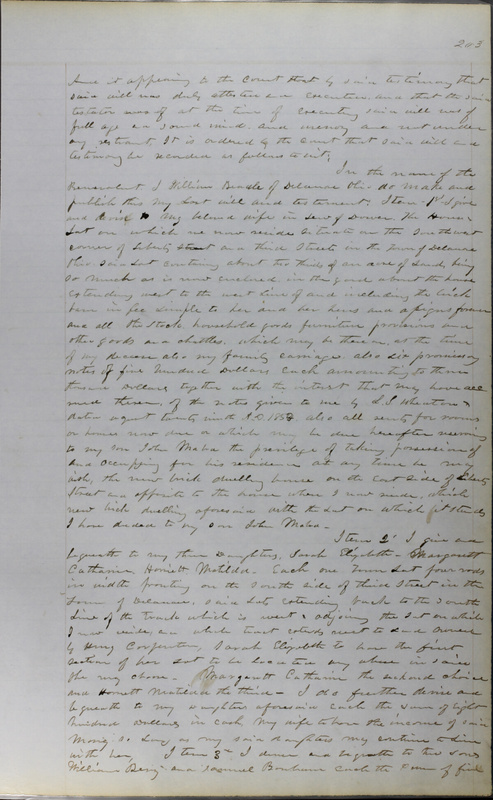 203
And it appearing to the Court that by said testimony that
said will was duly attested and executed and that the said
testator was of at the time of executing said will was of
full age and sound mind and memory and not under
any restraint. It is ordered by the Court that said will and
testimony be recorded as follows to wit;
In the name of the
Benevolent I William Beasle of Delaware Ohio do make and
publish this my last will and testament; Item 1st I give
and devise to my beloved wife in lew of Dower, The House
Lot on which we now reside situate on the Southwest
corner of Liberty Street and third Streets in the town of Delaware
Ohio. said Lot containing about two third of an acre of Land, being
so much as is now enclosed in the yard about the house
extending west to the west line of and including the brick
barn in fee simple to her and her heirs and assigns forever
and all the stock household goods furniture provisions and
other goods and chattles which may be thereon at the time
of my decease also my family carriage. also six promissory
notes of five hundred Dollars each amounting to three
thousand Dollars, together with the interest that may have
made thereon, of the notes given to me by
dated august twenty ninth A.D. 185 also all rents for rooms
or houses now due or which may be due hereafter reserving
to my son John Maba the privilege of taking possession of
and occupying for his residence at any time he may
ask, the new brick dwelling house on the East side of Liberty
Street and opposite to the house where I now reside, which
new brick dwelling aforesaid with the Lot on which it stands
I have deeded to my son John Maba.
Item 2d I give and
bequeath to my three Daughters, Sarah Elizabeth - Margarett
Catharine, Harriett Matilda. Each one Town Lot four rods
in width fronting on the South side of third Street in the
Town of Delaware, said Lots extending back to the South
line of the tract which is west & adjoining the Lot on which
I now reside, and which tract extends west to Land owned
by Henry Carpenter, Sarah Elizabeth to have the first
section of her Lot to be located any where in said
she may chose. Margarett Catharine the second choice
and Harriett Matilda the third - I do further devise and
bequeath to my Daughters aforesaid each the sum of Eight
hundred Dollars in cash my wife to have the income of said
Money so long as my said daughters may continue to live
with her, Item 3d I devise and bequeath to the sons
William Benj. and Samuel Bonham each the sum of five